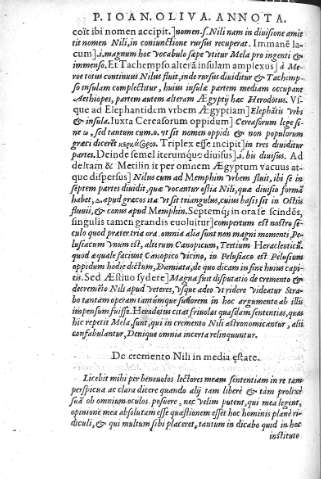 P. IOAN. OLIVA. ANNOTA.
coit ibi nomen accipit.] nomen s. Nili nam in diuisione amit
tit nomen Nili, in coniunctione rursus recuperat. Immanē la
cum] .i. magnum hoc vocabulo sæpe vtitur Mela pro ingenti &
immenso. Et Tachempso alteriā insulam amplexus] à Me
roe totus continuus Nilus fluit, inde rursus diuiditur & Tachemp-
so insulam complectitur, huius insulæ partem mediam occupant
Aethiopes, partem autem alteram Ægyptij hæc Herodotus. Vs
que ad Elephantidem vrbem Ægyptiam] Elephātis vrbs
& insula. Iuxta Cercasorum oppidum] Cercasorum lege si
ne ω, sed tantum cum o. vt sit nomen oppidi & non populorum
græci dicerēt Triplex esse incipit] in tres diuiditur
partes. Deinde semel iterumque diuisus] .i. bis diuisus. Ad
deltam & Metilin it per omnem Ægyptum vacuus at-
que dispersus] Nilus cum ad Memphim vrbem fluit, ibi se in
septem partes diuidit, quæ vocantur ostia Nili, quæ diuisio formā
habet, apud græcos ita vt sit triangulus, cuius basis sit in Ostijs
fluuij, & conus apud Memphin. Septemq; in ora se scindēs,
singulis tamen grandis euoluitur.] compertum est nostro se-
culo quod præter tria ora omnia alia sunt non magni momenti, Pe
lusiacum vnum est, alterum Canopicum, Tertium Heracleoticū.
quod æquale faciunt Canopico vicino, in Pelusiaco est Pelusium
oppidum hodie dictum, Damiata, de quo dicam in fine huius capi
tis. Sed Æstiuo sydere] Magna fuit disputatio de cremēto &
decremēto Nili apud veteres, Vsque adeo vt ridere videatur Stra-
bo tantam operam tantumque sudorem in hoc argumento ab illis
impensum fuisse. Herodotus citat friuolas quasdam sententias, quas
hic repetit Mela, sunt, qui in cremento Nili astronomicantur, alij
confabulantur, Denique omnia incerta relinquuntur.
De cremento Nili in media estate.
Licebit mihi per beneuolos lectores meam sententiam in re tam
perspicua ac clara dicere quando alij tam libere & tam prolixè
suā ob omnium oculos posuere, nec velim putent, qui mea legent,
opinione mea absolutam esse quæstionem esset hoc hominis planè ri-
diculi, & qui multum sibi placeret, tantum indicabo quid in hoc
institute